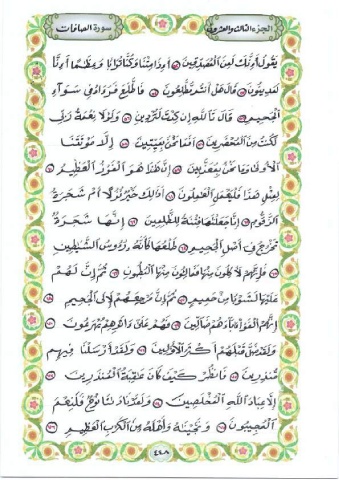 الجزء الثالث والعشرون
سورة الصافات
يَقُولُ أَءِنَّكَ لَمِنَ الْمُصَدِّقِينَ ٥٢ أَءِذَا مِتْنَا وَكُنَّا تُرَابًا وَعِظَٰمًا أَءِنَّا
لَمَدِينُونَ ٥٣ قَالَ هَلْ أَنتُم مُّطَّلِعُونَ ٥٤ فَاطَّلَعَ فَرَءَاهُ فِي سَوَآءِ
الْجَحِيمِ ٥٥ قَالَ تَاللَّهِ إِن كِدتَّ لَتُرْدِينِ ٥٦ وَلَوْلَا نِعْمَةُ رَبِّي
لَكُنتُ مِنَ الْمُحْضَرِينَ ٥٧ أَفَمَا نَحْنُ بِمَيِّتِينَ ٥٨ إِلَّا مَوْتَتَنَا
الْأُولَىٰ وَمَا نَحْنُ بِمُعَذَّبِينَ ٥٩ إِنَّ هَٰذَا لَهُوَ الْفَوْزُ الْعَظِيمُ ٦٠
لِمِثْلِ هَٰذَا فَلْيَعْمَلِ الْعَٰمِلُونَ ٦١ أَذَٰلِكَ خَيْرٌ نُّزُلًا أَمْ شَجَرَةُ
الزَّقُّومِ ٦٢ إِنَّا جَعَلْنَٰهَا فِتْنَةً لِّلظَّٰلِمِينَ ٦٣ إِنَّهَا شَجَرَةٌ
تَخْرُجُ فِي أَصْلِ الْجَحِيمِ ٦٤ طَلْعُهَا كَأَنَّهُ رُءُوسُ الشَّيَٰطِينِ ٦٥
فَإِنَّهُمْ لَءَاكِلُونَ مِنْهَا فَمَالِـُٔونَ مِنْهَا الْبُطُونَ ٦٦ ثُمَّ إِنَّ لَهُمْ
عَلَيْهَا لَشَوْبًا مِّنْ حَمِيمٍ ٦٧ ثُمَّ إِنَّ مَرْجِعَهُمْ لَإِلَى الْجَحِيمِ ٦٨
إِنَّهُمْ أَلْفَوْا ءَابَآءَهُمْ ضَآلِّينَ ٦٩ فَهُمْ عَلَىٰ ءَاثَٰرِهِمْ يُهْرَعُونَ ٧٠
وَلَقَدْ ضَلَّ قَبْلَهُمْ أَكْثَرُ الْأَوَّلِينَ ٧١ وَلَقَدْ أَرْسَلْنَا فِيهِم
مُّنذِرِينَ ٧٢ فَانظُرْ كَيْفَ كَانَ عَٰقِبَةُ الْمُنذَرِينَ ٧٣
إِلَّا عِبَادَ اللَّهِ الْمُخْلَصِينَ ٧٤ وَلَقَدْ نَادَىٰنَا نُوحٌ فَلَنِعْمَ
الْمُجِيبُونَ ٧٥ وَنَجَّيْنَٰهُ وَأَهْلَهُ مِنَ الْكَرْبِ الْعَظِيمِ ٧٦
٤٤٨